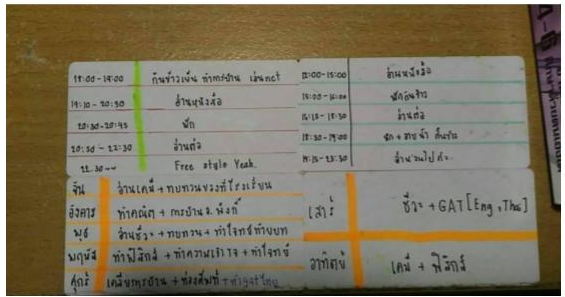 18:00 - 19:00 กินข้าวเย็น ทำการบ้าน เล่นnet
19:10 - 20:30 อ่านหนังสือ
20:30-20:45 พัก
20:50 - 22:30 อ่านต่อ
22.30 -- Free style Yeah.
12:00-15:00 อ่านหนังสือ
15:00 - 16:00
16:15 - 18:30 อ่านต่อ
18:30 - 19:00
19:15 - 23:30
จัน อ่านเคมี + ทบทวนของที่โรงเรียน
อังคาร ทำคณิต + การบ้าน
พุธ อ่านชีวะ + ทบทวน + ทำโจทย์ท้ายบท
พฤหัส ทำฟิสิกส์ + ทำความเข้าใจ + ทำโจทย์
ศุกร์ เคลียการบ้าน + ท่องศัพท์ + ทำgatไทย
เสาร์ ชีวะ + GAT [Eng + Thai]
อาทิตย์ เคมี + ฟิสิกส์